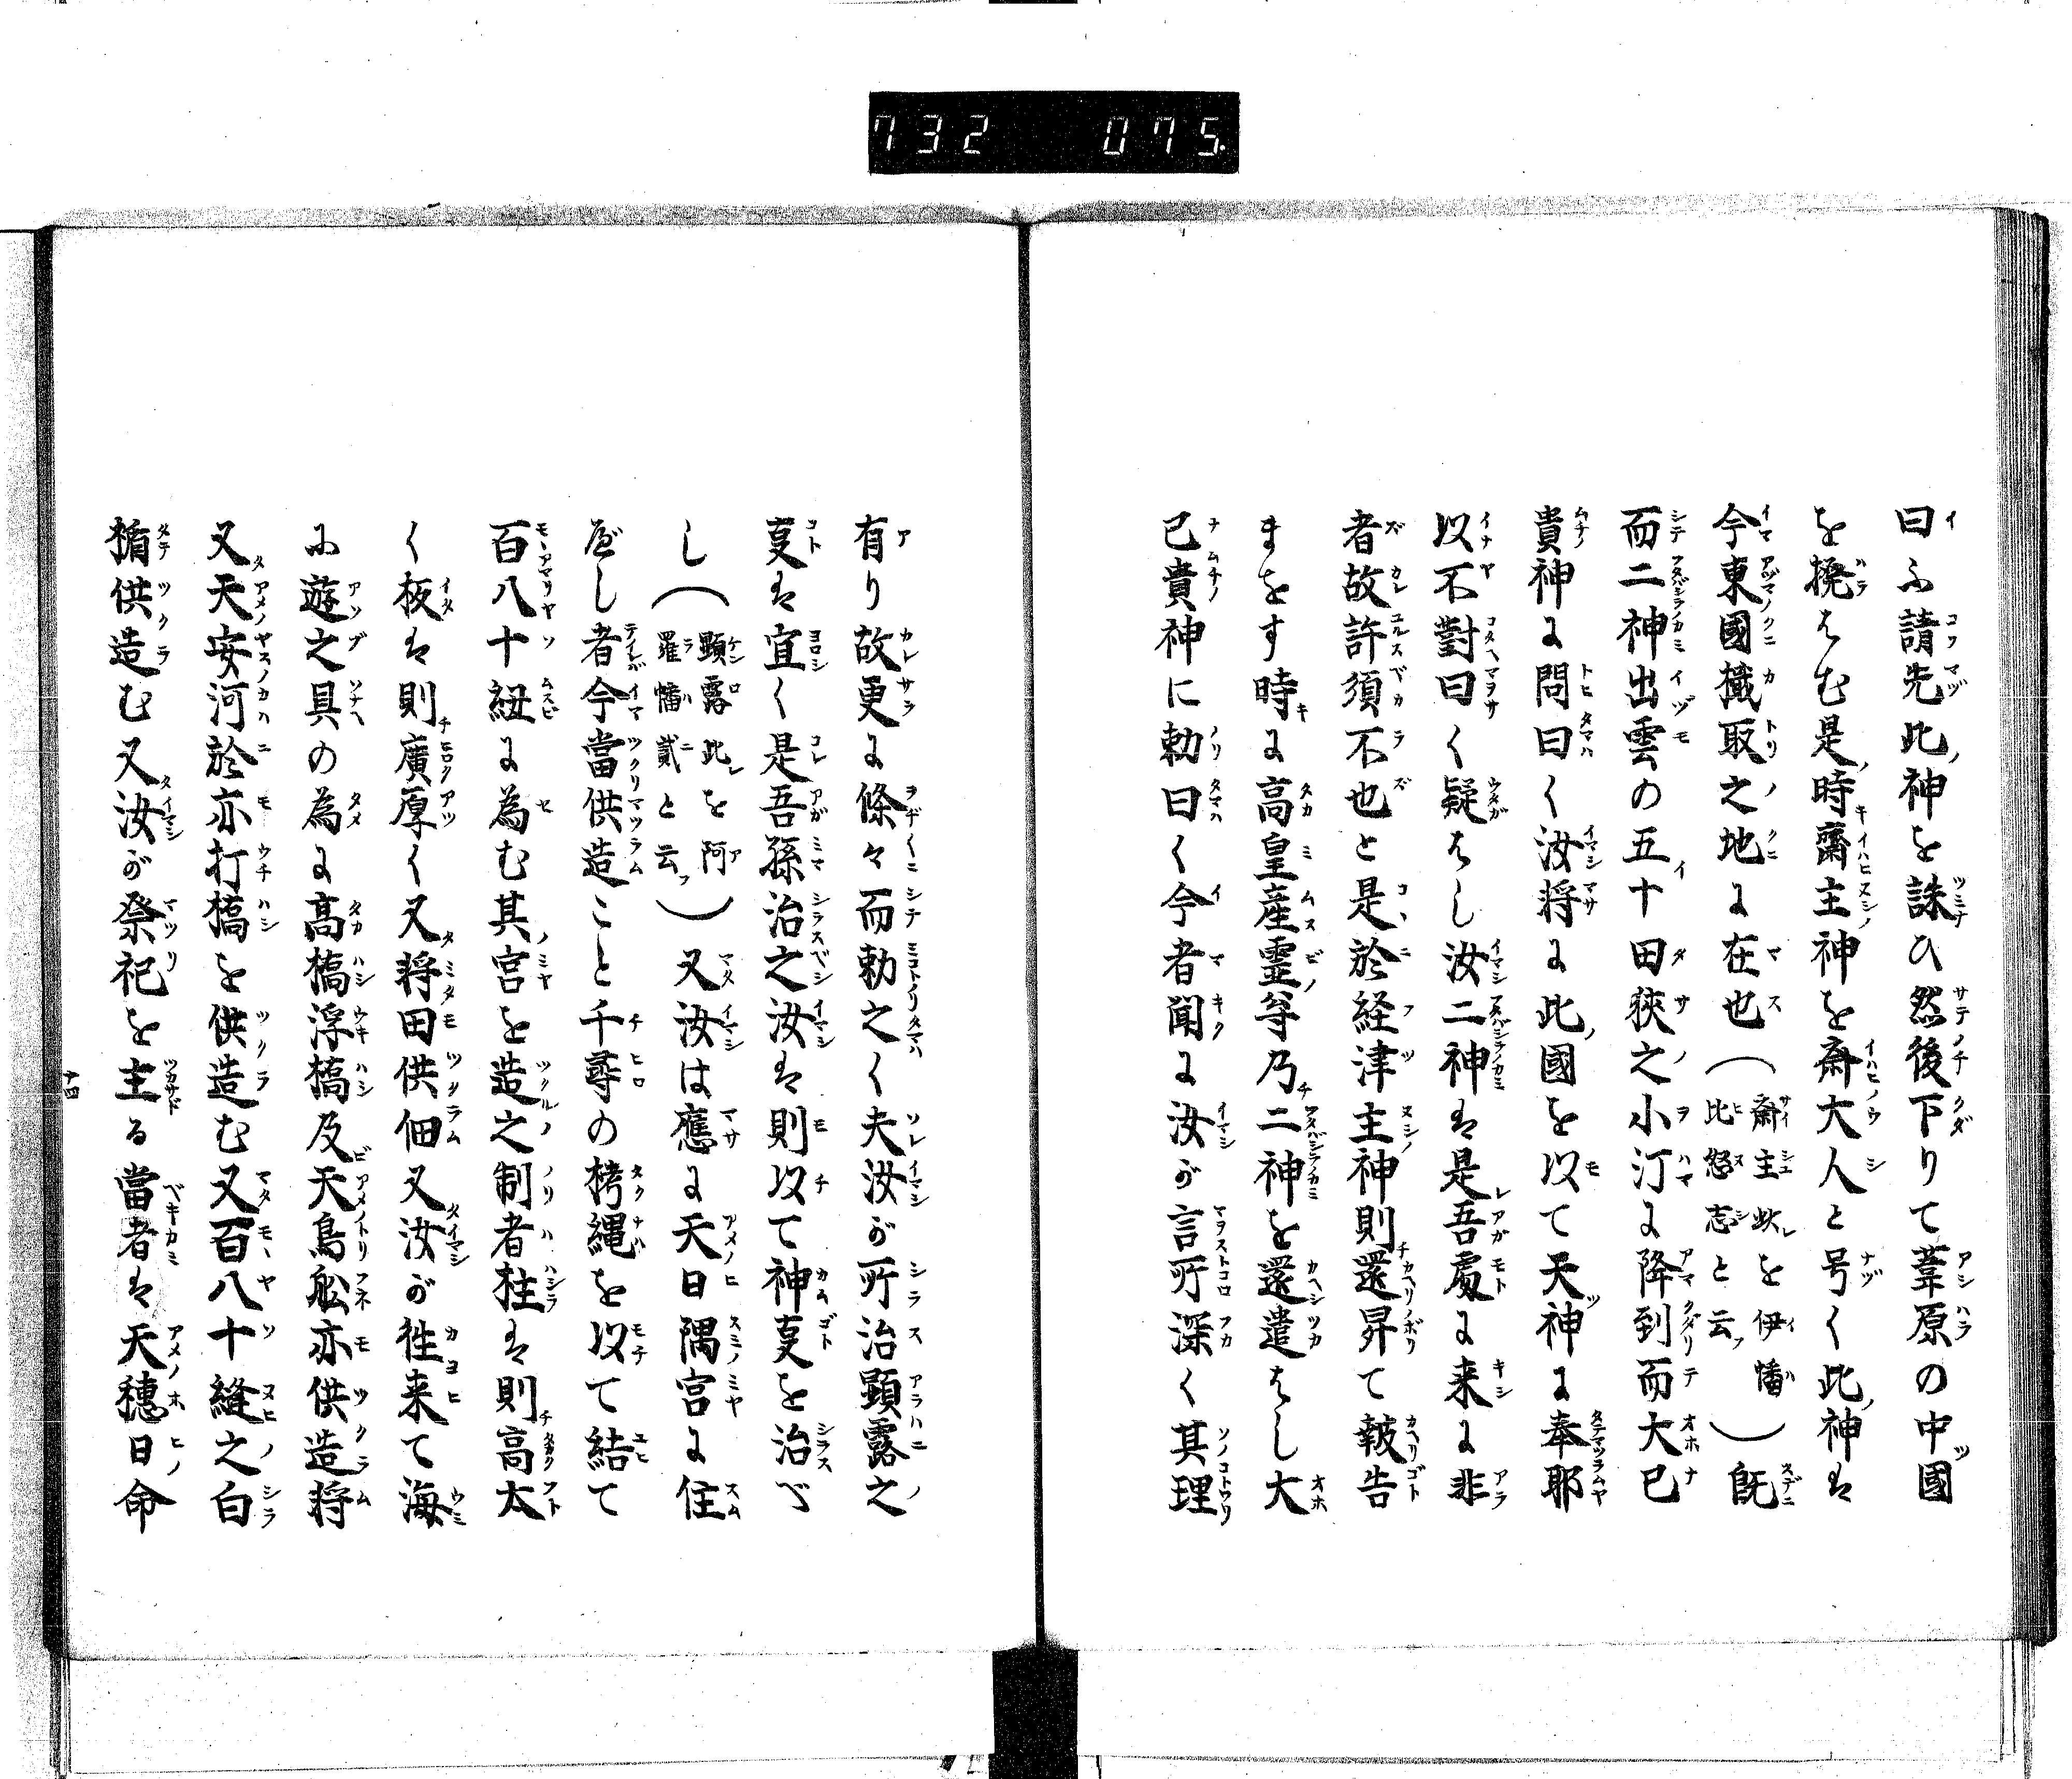 732 075.
曰ふ請先此神を誅ひ然後下りて葦原の中國
を撥はむ是時齋主神を斎大人と号く此神は
今東國檝取之地に在也（斎主此を伊幡比怒志と云）既
而二神出雲の五十田狭之小汀に降到而大己
貴神に問曰く汝将に此國を以て天神に奉耶
以不對曰く疑はし汝二神は是吾處に来に非
者故許須不也と是於経津主神則還昇て報告
まをす時に高皇産霊尊乃二神を還遣はし大
己貴神に勅曰く今者聞に汝が言所深く其理
有り故更に條々而勅之く夫汝が所治顕露之
事は宜く是吾孫治之汝は則以て神事を治べ
し（顕露此を阿羅幡貳と云）又汝は應に天日隅宮に住
べし者今當供造こと千尋の栲縄を以て結て
百八十紐に為む其宮を造之制者柱は則高太
く板は則廣厚く又将田供佃又汝が往来て海
に遊之具の為に高橋浮橋及天鳥舩亦供造将
又天安河於亦打橋を供造む又百八十縫之白
楯供造む又汝が祭祀を主る當者は天穂日命
十四